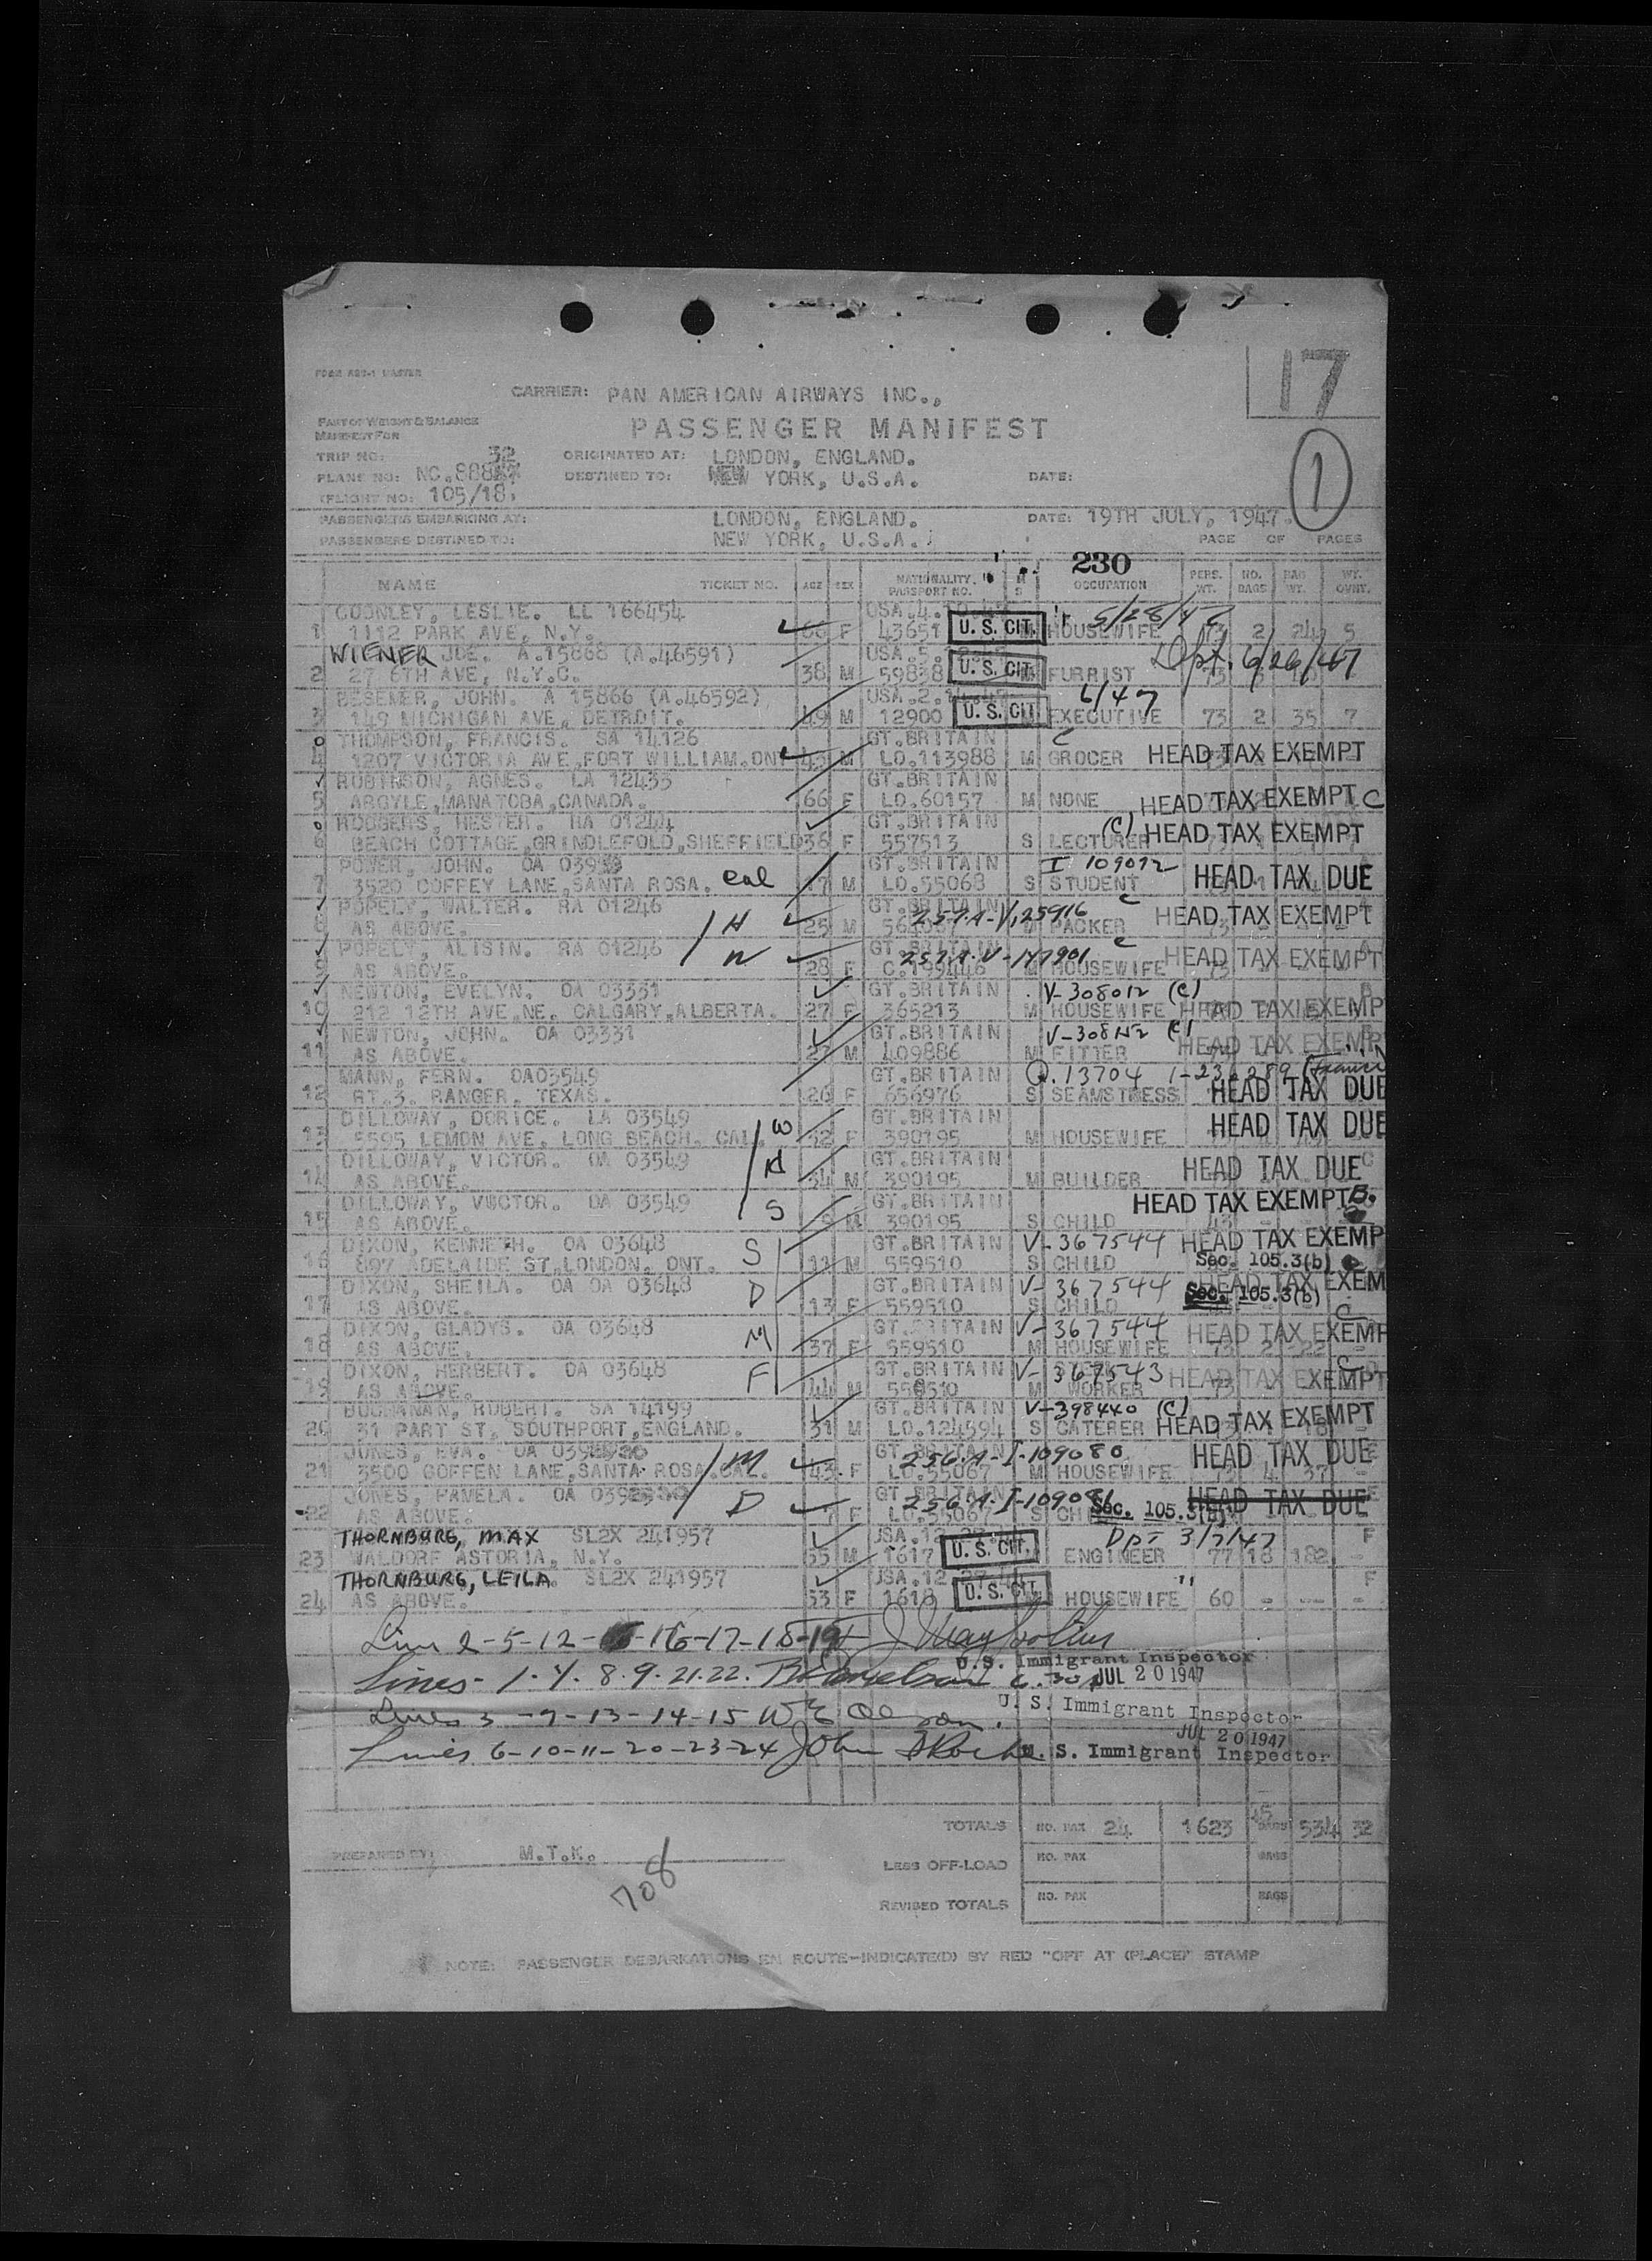 FORM ABC-1 MASTER
17
CARRIER: PAN AMERICAN AIRWAYS INC.,
PART OF WEIGHT & BALANCE
MANIFEST FOR
PASSENGER MANIFEST
1
TRIP NO: 32 ORIGINATED AT: LONDON, ENGLAND.
PLANE NO: NC.888 DESTINED TO: NEW YORK, U.S.A. DATE:
(FLIGHT NO: 105/18.
PASSENGERS EMBARKING AT: LONDON, ENGLAND. DATE: 19TH JULY, 1947.
PASSENGERS DESTINED TO: NEW YORK, U.S.A. PAGE OF PAGES
230
NAME TICKET NO. AGE SEX NATIONALITY. PASSPORT NO. M S OCCUPATION PERS. WT. NO. BAGS BAG WT. WT. OVWT.
LESLIE. LL 166454 USA.4. 5/28/47
1 1112 PARK AVE, N.Y. F 43651 U. S. CIT. HOUSEWIFE 73 2 24 5
WIENER JOE. A.15868 (A.46591) USA.5. Dpt. 6/26/47
2 27 6TH AVE, N.Y.C. 38 M 59838 U. S. CIT. FURRIST 73
BESEMER, JOHN. A 15866 (A.46592) USA.2. 6/47
3 149 MICHIGAN AVE, DETROIT. 49 M 12900 U. S. CIT EXECUTIVE 73 2 35 7
THOMPSON, FRANCIS. SA 14126 GT.BRITAIN C
4 1207 VICTORIA AVE,FORT WILLIAM.ONT 45 M LO.113988 M GROCER HEAD TAX EXEMPT
ROBINSON, AGNES. LA 12433 GT.BRITAIN
5 ARGYLE,MANATOBA,CANADA. 66 F LO.60157 M NONE HEAD TAX EXEMPT C
RODGERS, HESTER. RA 01244 GT.BRITAIN
6 BEACH COTTAGE,GRINDLEFOLD,SHEFFIELD 36 F 557513 S LECTURER (C) HEAD TAX EXEMPT
POWER, JOHN. OA GT.BRITAIN I 109072
7 3520 COFFEY LANE,SANTA ROSA. cal 17 M LO.55068 S STUDENT HEAD TAX DUE
POPELY, WALTER. RA 01246 GT.BRITAIN 257.A-V,25916 C
8 AS ABOVE. H 25 M M PACKER HEAD TAX EXEMPT
POPELY, ALISIN. RA 01246 GT.BRITAIN 257.A.V-147901 C
9 AS ABOVE. W 28 F C.199446 M HOUSEWIFE HEAD TAX EXEMPT
NEWTON, EVELYN. OA 03331 GT.BRITAIN V-308012 (C)
10 212 12TH AVE.NE. CALGARY,ALBERTA. 27 F 365213 M HOUSEWIFE HEAD TAX EXEMP
NEWTON, JOHN. OA 03331 GT.BRITAIN (C)
11 AS ABOVE. 27 M 409886 M FITTER HEAD TAX EXEMP
MANN, FERN. OA03549 GT.BRITAIN Q.13704
12 RT.3. RANGER, TEXAS. 26 F 656976 S SEAMSTRESS HEAD TAX DUE
DILLOWAY, DORICE. LA 03549 GT.BRITAIN
13 5595 LEMON AVE. LONG BEACH. CAL. W 32 F 390195 M HOUSEWIFE HEAD TAX DUE
DILLOWAY, VICTOR. OA 03549 GT.BRITAIN
14 AS ABOVE. H 34 M 390195 M BUILDER HEAD TAX DUE C
DILLOWAY, VICTOR. OA 03549 GT.BRITAIN HEAD TAX EXEMPT B.
15 AS ABOVE. S M 390195 S CHILD
DIXON, KENNETH. OA 03648 GT.BRITAIN V-367544 HEAD TAX EXEMP
16 897 ADELAIDE ST.LONDON. ONT. S 11 M 559510 S CHILD Sec. 105.3(b)
DIXON, SHEILA. OA OA 03648 GT.BRITAIN V-367544 HEAD TAX EXEM
17 AS ABOVE. D 13 F 559510 S CHILD Sec. 105.3(b)
DIXON, GLADYS. OA 03648 GT.BRITAIN V-367544 HEAD TAX EXEMP C
18 AS ABOVE. M 37 F 559510 M HOUSEWIFE 73 2 22 -
DIXON, HERBERT. OA 03648 GT.BRITAIN V-367543 C
19 AS ABOVE. F 44 M 559510 M WORKER HEAD TAX EXEMPT
BUCHANAN, ROBERT. SA 14199 GT.BRITAIN V-398440 (C)
20 31 PART ST. SOUTHPORT,ENGLAND. 31 M LO.124594 S CATERER HEAD TAX EXEMPT
JONES, EVA. OA GT.BRITAIN 256.A-I-109080 HEAD TAX DUE
21 3500 GOFFEN LANE,SANTA ROSA.CAL. M 43 F LO.55067 M HOUSEWIFE 73 4 37 -
JONES, PAMELA. OA GT.BRITAIN 256.A.I-109081 HEAD TAX DUE
22 AS ABOVE. D 7 F LO.55067 S CHILD Sec. 105.3(b)
THORNBURG, MAX SL2X 241957 USA.12. DPT 3/7/47 F
23 WALDORF ASTORIA, N.Y. 55 M 1617 U. S. CIT. ENGINEER 77 18 182 -
THORNBURG, LEILA SL2X 241957 USA.12.27.44 " F
24 AS ABOVE. 53 F 1618 U. S. CIT. HOUSEWIFE 60 - - -
Line 2-5-12- -16-17-18-19
U.S. Immigrant Inspector
Lines- 1.4. 8.9.21.22. JUL 20 1947
U. S. Immigrant Inspector
Lines 3 -7-13-14-15
JUL 20 1947
Lines 6-10-11-20-23-24 John U. S. Immigrant Inspector
TOTALS NO. PAX 24 1623 45 BAGS 534 32
PREPARED BY: M.T.K. LESS OFF-LOAD NO. PAX BAGS
708
REVISED TOTALS NO. PAX BAGS
NOTE: PASSENGER DEBARKATIONS EN ROUTE-INDICATE(D) BY RED "OFF AT (PLACE)" STAMP